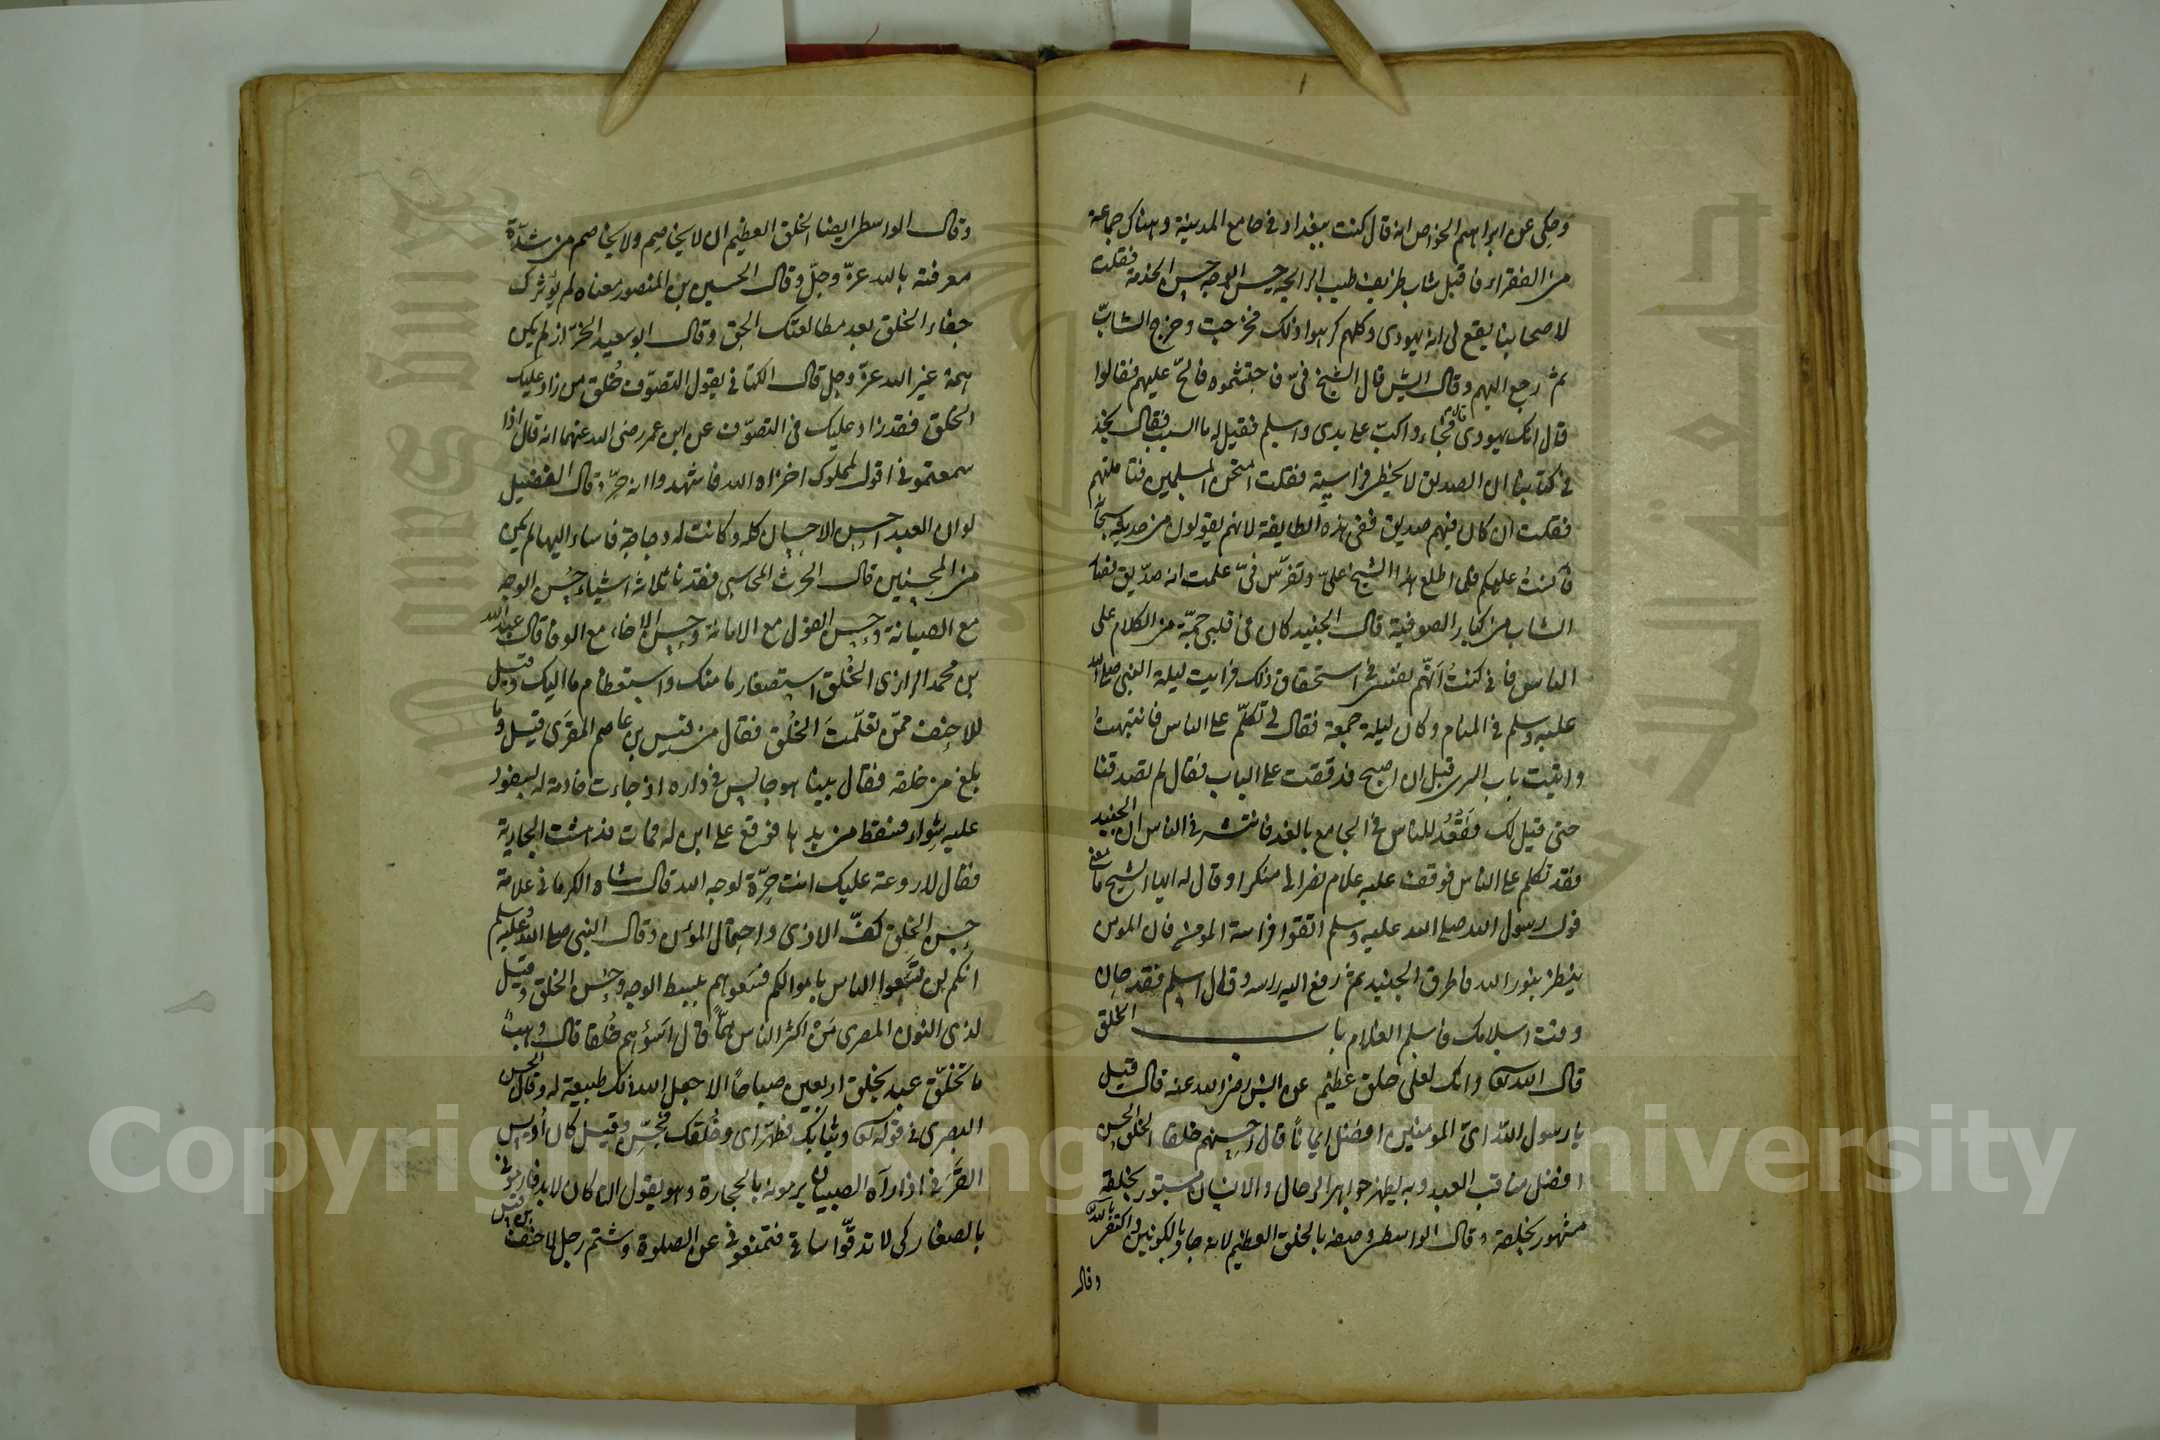 وحكى عن ابراهيم الخواص انه قال كنت ببغداد في جامع المدينة وهناك جماعة
من الفقراء فاقبل شاب ظريف طيب الرايحة حسن الوجه حسن الخدمة فقلت
لاصحابنا يقع لي انه يهودي وكلهم كرهوا ذلك فخرجت وخرج الشاب
ثم رجع اليهم وقال ايش قال الشيخ فيّ فاحتشموه فالحّ عليهم فقالوا
قال انك يهودي قال فجاء واكبّ على يدي واسلم فقيل له ما السبب فقال نجد
في كتابنا ان الصديق لا يخطى فراسته فقلت امتحن المسلمين فتاملتهم
فقلت ان كان فيهم صديق ففي هذه الطايفة لانهم يقولون
عليكم فلما اطلع هذا الشيخ عليّ وتفرّس فيّ علمت انه صدّيق
الشاب من كبار الصوفية قال الجنيد كان في قلبي حمّة من الكلام على
الناس فاني كنت اتّهم نفسي في استحقاق ذلك فرايت ليلة النبي صلى الله
عليه وسلم في المنام وكان ليلة جمعة فقال لي تكلّم على الناس فانتبهت
واتيت باب السري قبل ان اصبح فدققت على الباب فقال لم تصدقنا
حتى قيل لك فقعد للناس في الجامع بالغد فانتشر في الناس ان الجنيد
فقد تكلم على الناس فوقف عليه غلام نصراني منكرا وقال له ايها الشيخ ما معنى
قول رسول الله صلى الله عليه وسلم اتقوا فراسة المومن فان المومن
ينظر بنور الله فاطرق الجنيد ثم رفع اليه راسه وقال اسلم فقد حان
وقت اسلامك فاسلم الغلام باب الخلق
قال الله تعالى وانك لعلى خلق عظيم عن انس رضي الله عنه قال قيل
يا رسول الله اىّ المومنين افضل ايمانًا قال احسنهم خلقا الخلق الحسن
افضل مناقب العبد وبه يظهر جواهر الرجال والانسان مستور بخلقه
مشهور بخلقه وقال الواسطي وصفه بالخلق العظيم لانه جاد بالكونين واكتفى بالله
وقال
وقال الواسطي ايضا الخلق العظيم ان لا يخاصِم ولا يخاصَم من شدّة
معرفته بالله عزّ وجلّ وقال الحسين بن المنصور معناه لم يؤثر فيك
جفاء الخلق بعد مطالعتك الحق وقال ابو سعيد الخرّاز لم يكن
همة غير الله عزّ وجل قال الكتاني يقول التصوّف خُلق من زاد عليك
الخلق فقد زاد عليك في التصوّف عن ابن عمر رضي الله عنهما انه قال اذا
سمعتموني اقول لمملوك اخزاه الله فاشهدوا انه حرّ وقال الفضيل
لو ان العبد احسن الاحسان كله وكانت له دجاجة فاساء اليها لم يكن
من المحسنين قال الحرث المحاسبي فقدنا ثلاثة اشياء حُسن الوجه
مع الصيانة وحسن القول مع الامانة وحسن الاخاء مع الوفا قال عبد الله
بن محمد الرازي الخُلق استصغار ما منك واستعظام ما اليك وقيل
للاحنف ممّن تعلّمتَ الخُلق فقال من قيس بن عاصم المقرى قيل وما
بلغ من خلقه فقال بينا هو جالس في داره اذ جاءت خادمة له بسفود
عليه شِواء فسقط من يدها فوقع على ابن له فمات فدهشت الجارية
فقال لا روعة عليك انت حرّة لوجه الله قال شاه الكرماني علامة
حسن الخلق كفّ الاذى واحتمال المؤن وقال النبي صلى الله عليه وسلم
انكم لن تسَعوا الناس باموالكم فسَعوهم ببسط الوجه وحسن الخلق وقيل
لذى النون المصرى مَنْ اكثر الناس همًّا قال اسَوُهم خُلقا قال وهب
ما تخلّق عبد بخلق اربعين صباحًا الا جعل الله ذلك طبيعة له وقال الحسن
البصرى في قوله تعالى وثيابك فطهّر اى وخُلقك فحسّن وقيل كان أويس
القرَنى اذا رآه الصبيان يرمونه بالحجارة وهو يقول ان كان لا بد فارمونى
بالصغار كى لا تدقّوا ساقى فتمنعونى عن الصلوة وشتم رجل لاحنف بن قيس